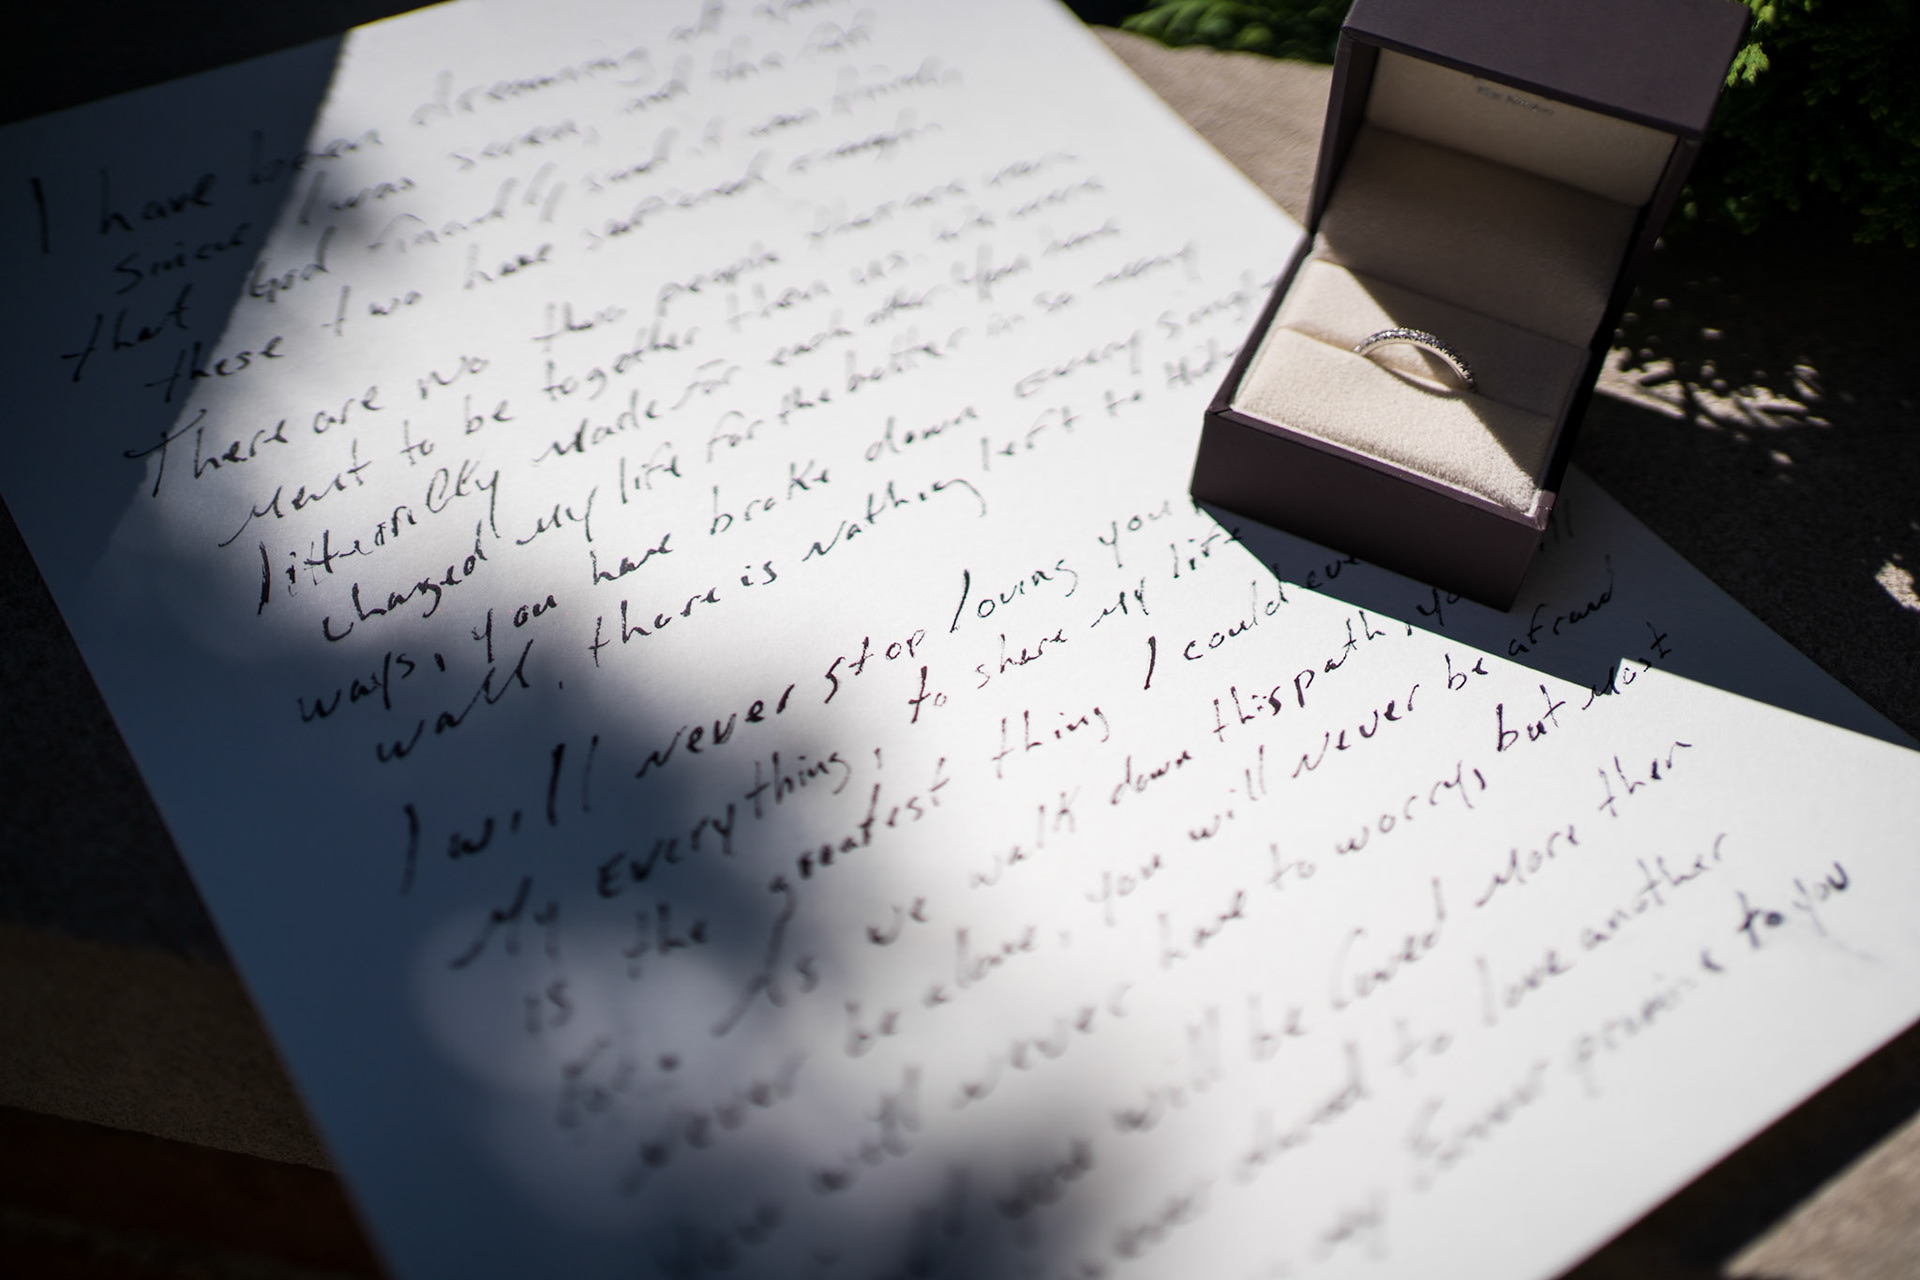 I have been dreaming of
since I was seven, and
that God finally said it
these two have suffered enough
There are no two people that are more
ment to be together then us. We were
litterilly made for each other. You have
changed my life for the better in so many
ways, you have broke down every single
wall, there is nothing left to
I will never stop loving you
My everything, to share my life
is the greatest thing I could ever
for. As we walk down this path, you
never be alone, you will never be afraid
you will never have to worry, but most
you will be loved more then
ever dared to love another
my forever promise to you